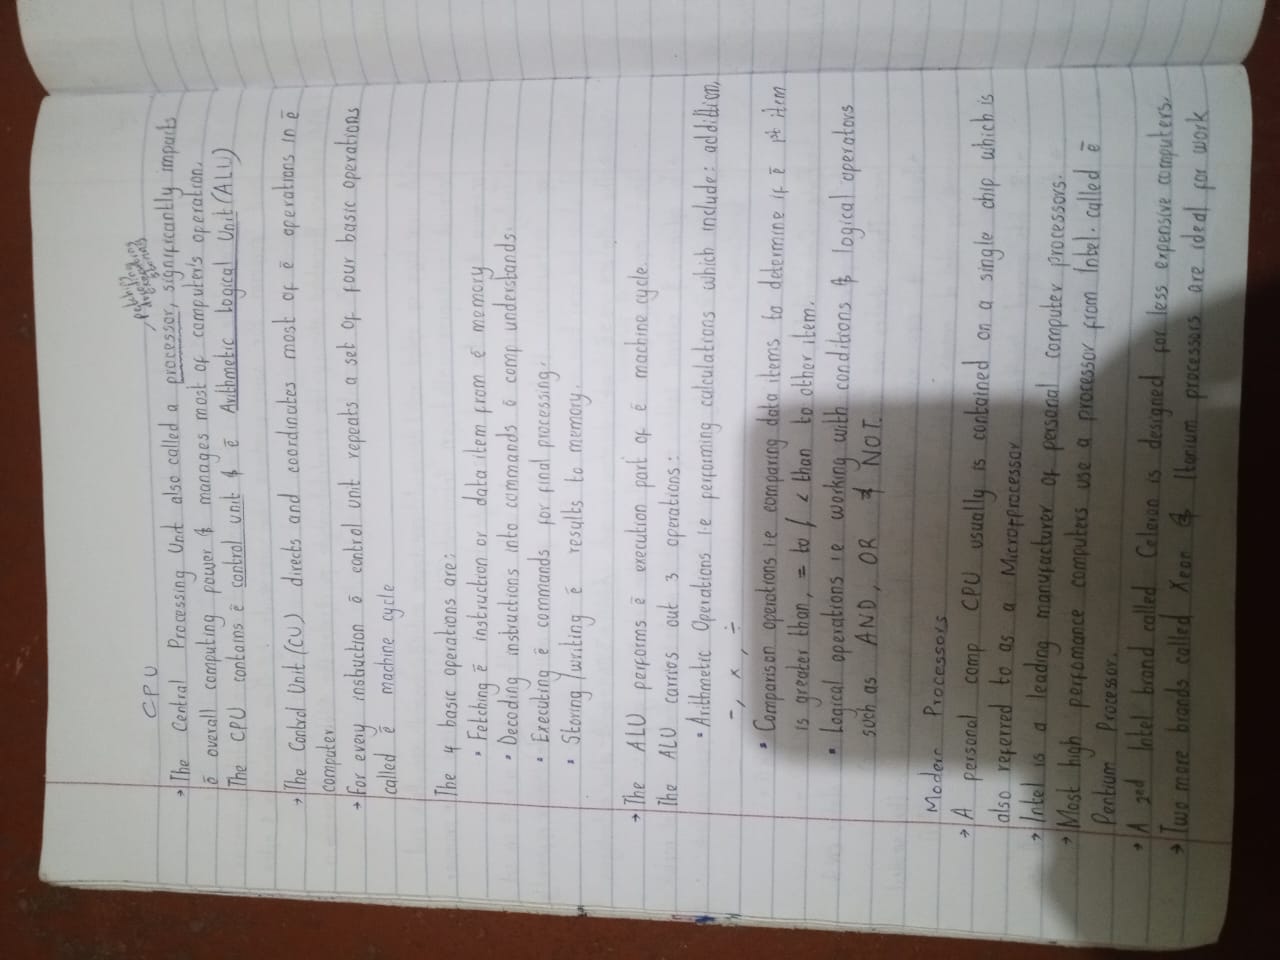 fetching
decoding
executing
storing
CPU
→ The Central Processing Unit also called a processor, significantly impacts
ō overall computing power & manages most of computer's operation.
The CPU contains ē control unit & ē Arithmetic Logical Unit (ALU)
→ The Control Unit (CU) directs and coordinates most of ē operations in ē
computer
→ For every instruction ō control unit repeats a set of four basic operations
called ē machine cycle
The 4 basic operations are:
• Fetching ē instruction or data item from ē memory
• Decoding instructions into commands ō comp understands.
• Executing ē commands for final processing.
• Storing/writing ē results to memory.
→ The ALU performs ē execution part of ē machine cycle.
The ALU carries out 3 operations:
• Arithmetic Operations i.e performing calculations which include: addition,
-, ×, ÷
• Comparison operations i.e comparing data items to determine if ē 1st item
is greater than, = to / < than to other item.
• Logical operations i.e working with conditions & logical operators
such as AND, OR & NOT.
Modern Processors
→ A personal comp CPU usually is contained on a single chip which is
also referred to as a Microprocessor
→ Intel is a leading manufacturer of personal computer processors.
→ Most high perfomance computers use a processor from Intel. called ē
Pentium Processor.
→ A 2nd Intel brand called Celeron is designed for less expensive computers.
→ Two more brands called Xeon & Itanium processors are ideal for work